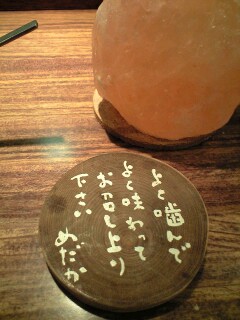 よく噛んで
よく味わって
お召し上り
下さい
めだか